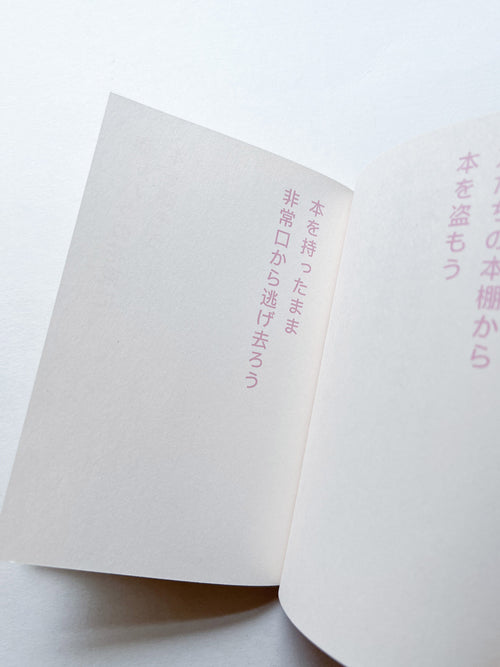 の本棚から
本を盗もう
本を持ったまま
非常口から逃げ去ろう